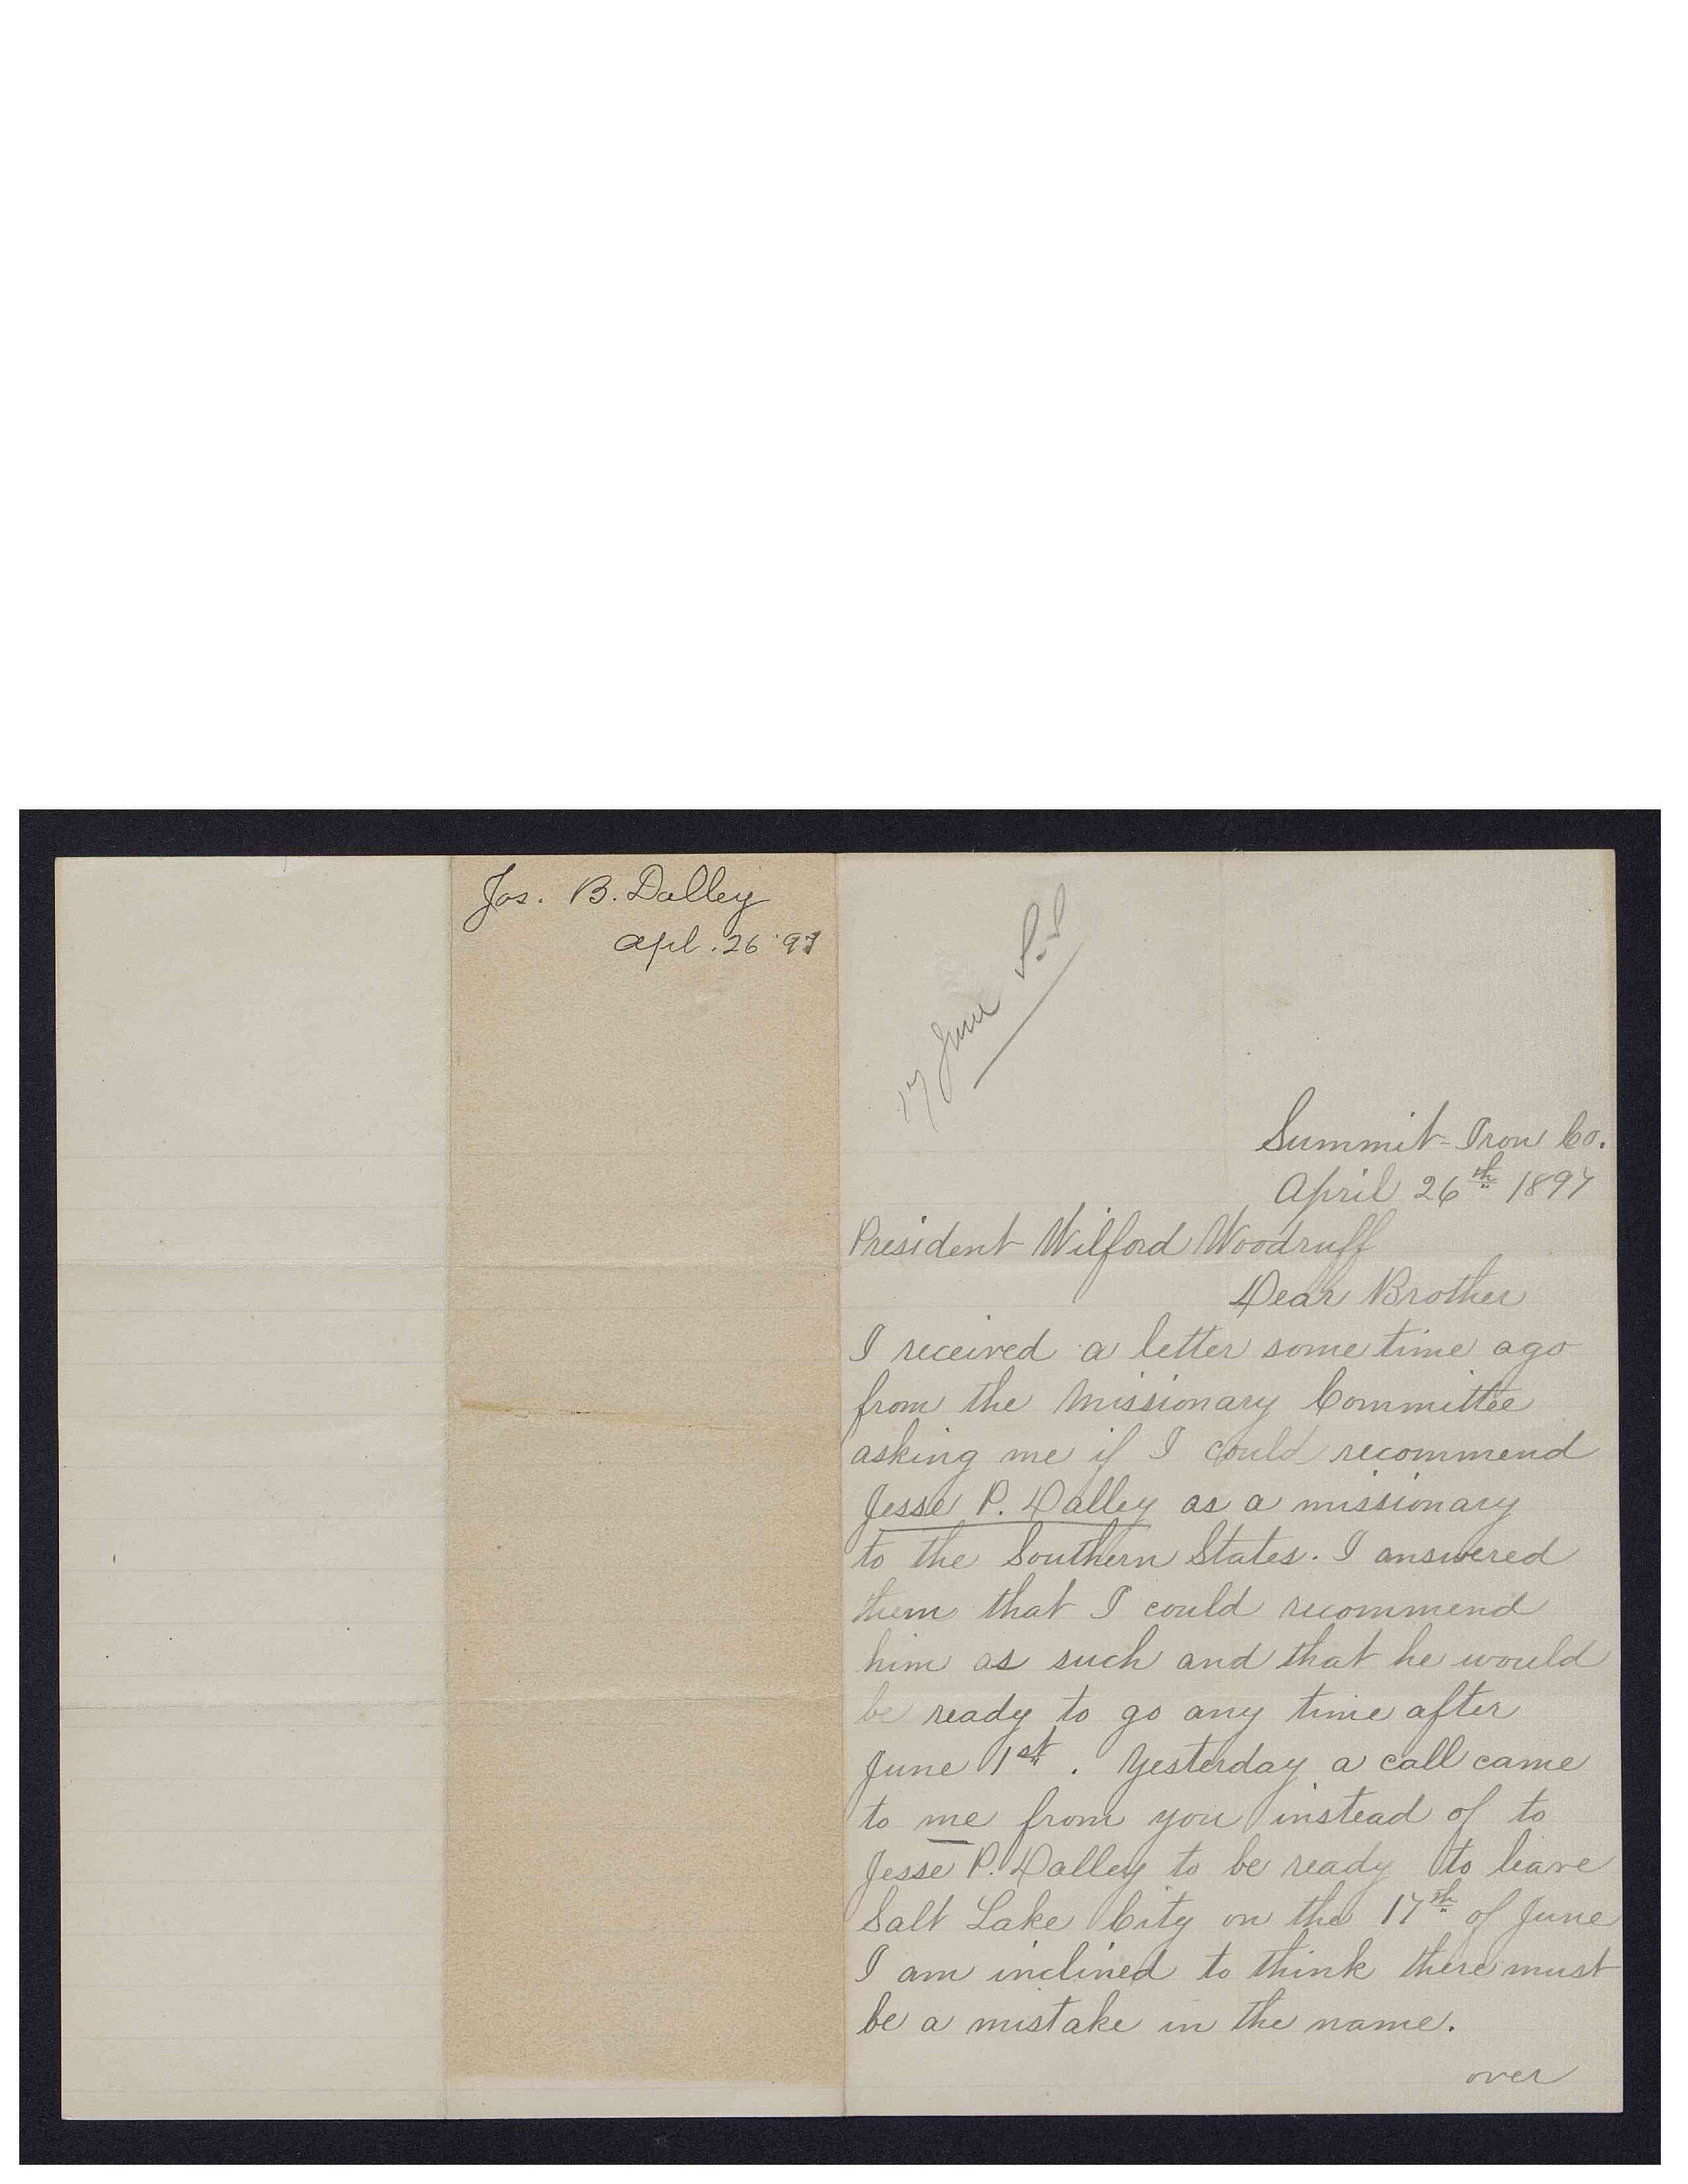 Jos. B. Dalley
Apl. 26 '97
17 June S.S
Summit Iron Co.
April 26th 1897
President Wilford Woodruff
Dear Brother
I received a letter some time ago
from the Missionary Committee
asking me if I could recommend
Jesse P. Dalley as a missionary
to the Southern States. I answered
them that I could recommend
him as such and that he would
be ready to go any time after
June 1st. Yesterday a call came
to me from you instead of to
Jesse P. Dalley to be ready to leave
Salt Lake City on the 17th of June
I am inclined to think there must
be a mistake in the name.
over